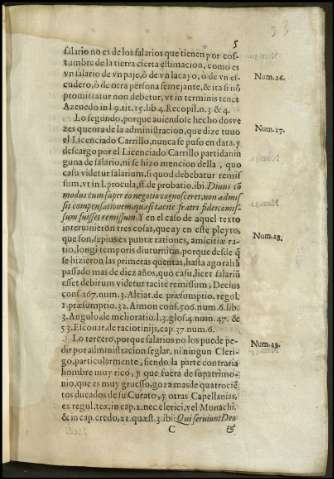 5
salario no es de los salarios que tienen por cos-
tumbre de la tierra cierta estimacion, como es
vn salario de vn paje, ò de vn lacayo, o de vn es-
cudero, ò de otra persona semejante, & ita si nõ
promittatur non debetur, vt in terminis tenet
Azeuedo in l. 9. tit. 15. lib. 4. Recopil. n. 3. & 4.
Num. 26.
Lo segundo, porque auiendose hecho dos ve
zes quenta de la administracion, que dize tuuo
Num. 27.
el Licenciado Carrillo, nunca se puso en data, y
descargo por el Licenciado Carrillo partida nin
guna de salario, ni se hizo mencion della, quo
casu videtur salarium, si quod debebatur remis
sum, vt in l. procula, ff. de probatio. ibi. Diuus cõ
modus cum super eo negotio cognosceret, non admi-
sit compensationem, quasi tacite fratri fideicomis-
sum fuisset remissum. Y en el caso de aquel texto
interuinieron tres cosas, que ay en este pleyto,
que son, ipsius puntæ rationes, amicitiæ ra-
Num. 28.
tio, longi temporis diuturnitas, porque desde q̃
se hizieron las primeras quentas, hasta agora hã
pasado mas de diez años, quo casu, licet salariũ
esset debitum videtur tacite remissum, Decius
cons. 267. num. 3. Alciat. de præsumptio. regul.
2. præsumptio. 32. Aimon cons. 506. num. 6. lib.
3. Angulo de meliioratio. l. 3. glos. 4. num. 47. &
53. Escouar. de raciotinijs, cap. 37. num. 6.
Lo tercero, porque salarios no los puede pe-
dir por administracion seglar, ni ningun Cleri-
Num. 29.
go, particularmente, siendo la parte contraria
hombre muy rico, y que fuera de su patrimo-
nio, que es muy gruesso, goza mas de quatrociẽ
tos ducados de su Curato, y otras Capellanias,
ex regul. tex. in cap. 2. nec clerici, vel Monachi.
& in cap. credo, 21. quæst. 3. ibi: Qui seruiunt Deo
C
&